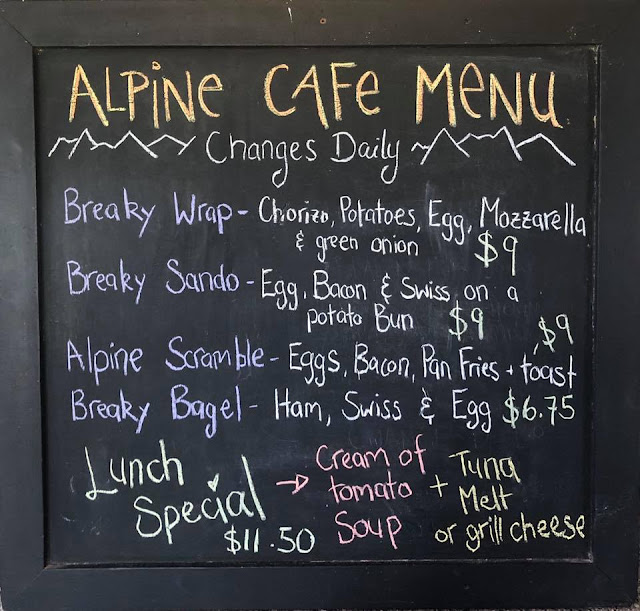 ALPINE CAFE MENU
Changes Daily
Breaky Wrap - Chorizo, Potatoes, Egg, Mozzarella
& green onion $9
Breaky Sando - Egg, Bacon & Swiss on a
potato Bun $9
$9
Alpine Scramble - Eggs, Bacon, Pan Fries + toast
Breaky Bagel - Ham, Swiss & Egg $6.75
Lunch Special $11.50
→ Cream of tomato Soup
+ Tuna Melt
or grill cheese